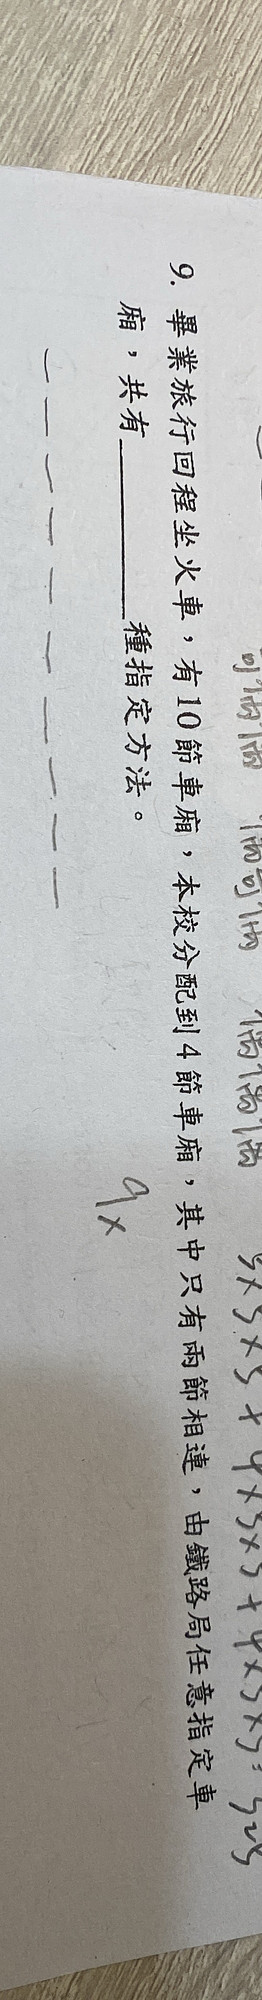 偶偶 偶奇偶 偶偶偶 5×5×5+4×5×5+4×5×5=325
9. 畢業旅行回程坐火車，有10節車廂，本校分配到4節車廂，其中只有兩節相連，由鐵路局任意指定車
廂，共有________種指定方法。
9×